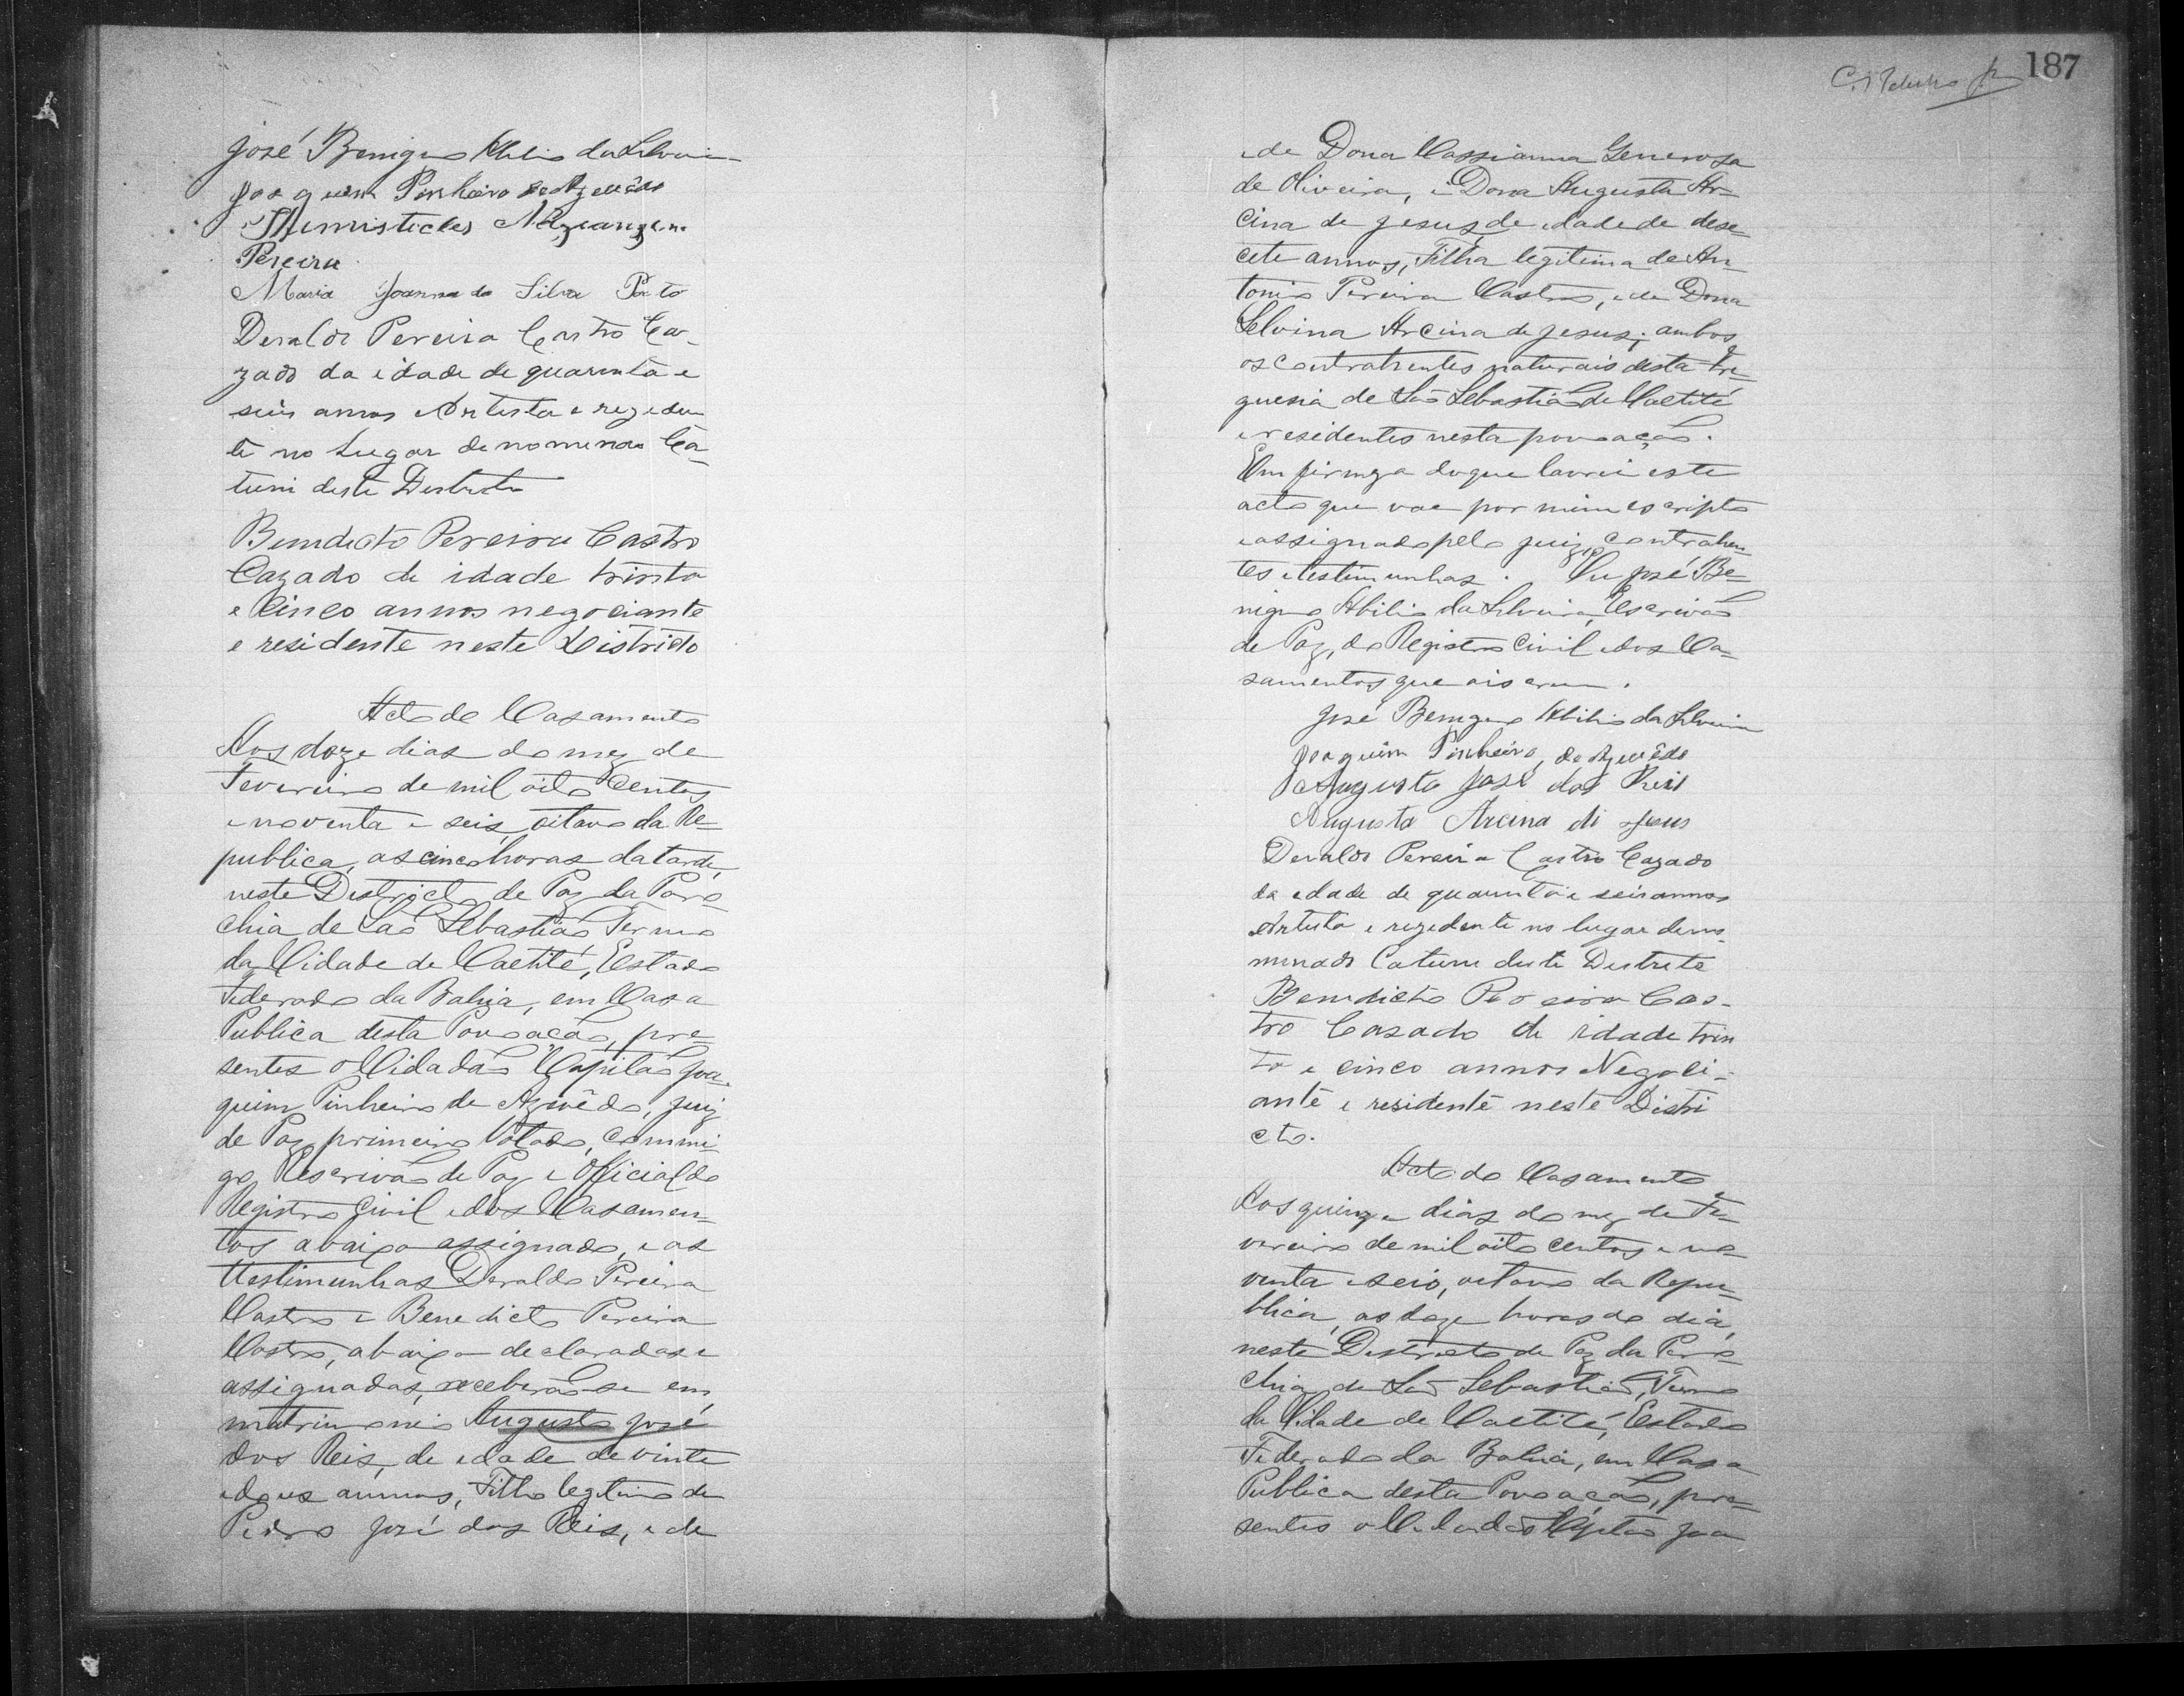 José Benigno Abilio da Silveira
Joaquim Pinheiro de Azevêdo
Themisticles
Pereira
Maria Joanna da Silva Porto
Deraldo Pereira Castro Ca-
zado da idade de quarenta e
seis annos Artista e reziden
te no Lugar denominado Ca-
tuni deste Destricto
Benedicto Pereira Castro
Cazado de idade trinta
e Cinco annos negociante
e residente neste Districto
Acto do Casamento
Aos doze dias do mez de
Fevereiro de mil oito Centos
e noventa e seis, oitavo da Re-
publica, as cinco horas da tarde,
neste Districto de Paz da Paro
chia de São Sebastião Termo
da Cidade de Caetité, Estado
Federado da Bahia, em Casa
Publica desta Povoação, pre-
sentes o Cidadão Capitão Joa-
quim Pinheiro de Azevêdo, Juiz
de Paz primeiro Votado, Commi-
go Escrivão de Paz e Official do
Registro Civil e dos Casamen-
tos abaixo assignado, e as
Testimunhas Deraldo Pereira
Castro e Benedicto Pereira
Castro, abaixo declaradas e
assignadas, receberão-se em
matrimonio Augusto José
dos Reis, de edade de vinte
e dous annos, Filho legitimo de
Pedro José dos Reis, e de
187
e de Dona Cassianna Generosa
de Oliveira, e Dona Augusta Ar-
cina de Jesus, de edade de dese-
cete annos, Filha legitima de An-
tonio Pereira Castro, e de Dona
Selvina Arcina de Jesus; ambos
os Contrahentes naturais desta Fre-
guesia de São Sebastião de Caetité
e residentes nesta povoação.
Em firmeza do que lavrei este
acto que vae por mim escripto
e assignado pelo juiz, contrahen-
tes e testimunhas. Eu José Be-
nigno Abilio da Silveira, Escrivão
de Paz, do Registro Civil e dos Ca-
samentos que
José Benigno Abilio da Silveira
Joaquim Pinheiro de Azevêdo
Augusto José dos Reis
Augusta Arcina di Jesus
Deraldo Pereira Castro Cazado
da edade de quarenta e seis annos
Artista e rezidente no lugar deno-
minado Catuni deste Destrito
Benedicto Pereira Cas-
tro Casado de idade trin
ta e cinco annos Negoci-
ante e residente neste Distri
cto.
Acto do Casamento
Aos quinze dias do mez de Fe-
vereiro de mil oito centos e no-
venta e seis, oitavo da Repu-
blica, as doze horas do dia,
neste Destricto de Paz da Paro-
chia de São Sebastião, Termo
da Cidade de Caetité, Estado
Federado da Bahia, em Casa
Publica desta Povoação, pre-
sentes o Cidadão Capitão Joa